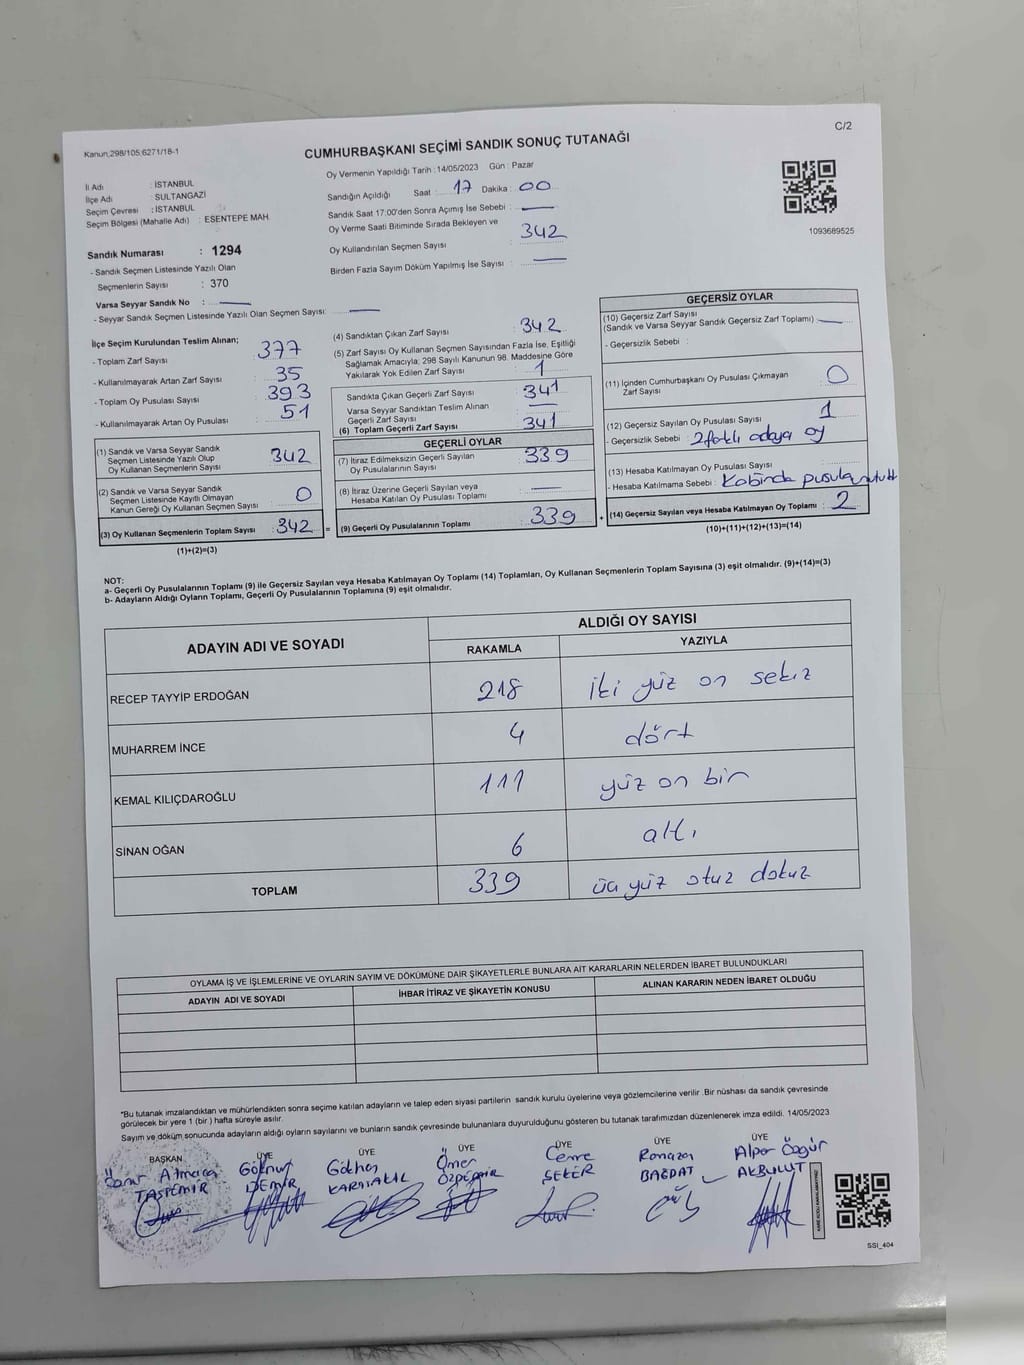 C/2
Kanun,298/105,6271/18-1
CUMHURBAŞKANI SEÇİMİ SANDIK SONUÇ TUTANAĞI
İl Adı : İSTANBUL
İlçe Adı : SULTANGAZİ
Seçim Çevresi : İSTANBUL
Seçim Bölgesi (Mahalle Adı) : ESENTEPE MAH.
Sandık Numarası : 1294
- Sandık Seçmen Listesinde Yazılı Olan
Seçmenlerin Sayısı : 370
Varsa Seyyar Sandık No : —
- Seyyar Sandık Seçmen Listesinde Yazılı Olan Seçmen Sayısı: —
Oy Vermenin Yapıldığı Tarih : 14/05/2023 Gün : Pazar
Sandığın Açıldığı Saat : 17 Dakika : 00
Sandık Saat 17:00'den Sonra Açımış İse Sebebi : —
Oy Verme Saati Bitiminde Sırada Bekleyen ve
Oy Kullandırılan Seçmen Sayısı : 342
Birden Fazla Sayım Döküm Yapılmış İse Sayısı : —
1093689525
İlçe Seçim Kurulundan Teslim Alınan;
- Toplam Zarf Sayısı : 377
- Kullanılmayarak Artan Zarf Sayısı : 35
- Toplam Oy Pusulası Sayısı : 393
- Kullanılmayarak Artan Oy Pusulası : 51
(1) Sandık ve Varsa Seyyar Sandık
Seçmen Listesinde Yazılı Olup
Oy Kullanan Seçmenlerin Sayısı : 342
(2) Sandık ve Varsa Seyyar Sandık
Seçmen Listesinde Kayıtlı Olmayan
Kanun Gereği Oy Kullanan Seçmen Sayısı : 0
(3) Oy Kullanan Seçmenlerin Toplam Sayısı : 342 =
(1)+(2)=(3)
(4) Sandıktan Çıkan Zarf Sayısı : 342
(5) Zarf Sayısı Oy Kullanan Seçmen Sayısından Fazla İse, Eşitliği
Sağlamak Amacıyla; 298 Sayılı Kanunun 98. Maddesine Göre
Yakılarak Yok Edilen Zarf Sayısı : 1
Sandıkta Çıkan Geçerli Zarf Sayısı : 341
Varsa Seyyar Sandıktan Teslim Alınan
Geçerli Zarf Sayısı : —
(6) Toplam Geçerli Zarf Sayısı : 341
GEÇERLİ OYLAR
(7) İtiraz Edilmeksizin Geçerli Sayılan
Oy Pusulalarının Sayısı : 339
(8) İtiraz Üzerine Geçerli Sayılan veya
Hesaba Katılan Oy Pusulası Toplamı : —
(9) Geçerli Oy Pusulalarının Toplamı : 339 +
GEÇERSİZ OYLAR
(10) Geçersiz Zarf Sayısı
(Sandık ve Varsa Seyyar Sandık Geçersiz Zarf Toplamı) : —
- Geçersizlik Sebebi :
(11) İçinden Cumhurbaşkanı Oy Pusulası Çıkmayan
Zarf Sayısı : 0
(12) Geçersiz Sayılan Oy Pusulası Sayısı : 1
- Geçersizlik Sebebi : 2 farklı adaya oy
(13) Hesaba Katılmayan Oy Pusulası Sayısı :
- Hesaba Katılmama Sebebi : Kabinde pusula
(14) Geçersiz Sayılan veya Hesaba Katılmayan Oy Toplamı : 2
(10)+(11)+(12)+(13)=(14)
NOT:
a- Geçerli Oy Pusulalarının Toplamı (9) ile Geçersiz Sayılan veya Hesaba Katılmayan Oy Toplamı (14) Toplamları, Oy Kullanan Seçmenlerin Toplam Sayısına (3) eşit olmalıdır. (9)+(14)=(3)
b- Adayların Aldığı Oyların Toplamı, Geçerli Oy Pusulalarının Toplamına (9) eşit olmalıdır.
ADAYIN ADI VE SOYADI
ALDIĞI OY SAYISI
RAKAMLA YAZIYLA
RECEP TAYYİP ERDOĞAN 218 iki yüz on sekiz
MUHARREM İNCE 4 dört
KEMAL KILIÇDAROĞLU 111 yüz on bir
SİNAN OĞAN 6 altı
TOPLAM 339 üç yüz otuz dokuz
OYLAMA İŞ VE İŞLEMLERİNE VE OYLARIN SAYIM VE DÖKÜMÜNE DAİR ŞİKAYETLERLE BUNLARA AİT KARARLARIN NELERDEN İBARET BULUNDUKLARI
ADAYIN ADI VE SOYADI İHBAR İTİRAZ VE ŞİKAYETİN KONUSU ALINAN KARARIN NEDEN İBARET OLDUĞU
*Bu tutanak imzalandıktan ve mühürlendikten sonra seçime katılan adayların ve talep eden siyasi partilerin sandık kurulu üyelerine veya gözlemcilerine verilir .Bir nüshası da sandık çevresinde
görülecek bir yere 1 (bir ) hafta süreyle asılır.
Sayım ve döküm sonucunda adayların aldığı oyların sayılarını ve bunların sandık çevresinde bulunanlara duyurulduğunu gösteren bu tutanak tarafımızdan düzenlenerek imza edildi. 14/05/2023
BAŞKAN ÜYE ÜYE ÜYE ÜYE ÜYE ÜYE
Göknur Gökhan Ömer Cemre Ramazan Alper Özgür
TAŞDEMİR DEMİR ÖZDEMİR ŞEKER BAĞDAT AKBULUT
SSI_404